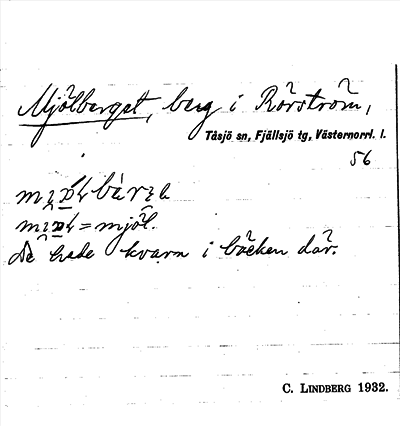 Mjölberget, berg i Rörström,
Tåsjö sn, Fjällsjö tg, Västernorrl. l.
56
= mjöl.
De hade kvarn i bäcken där.
C. LINDBERG 1932.